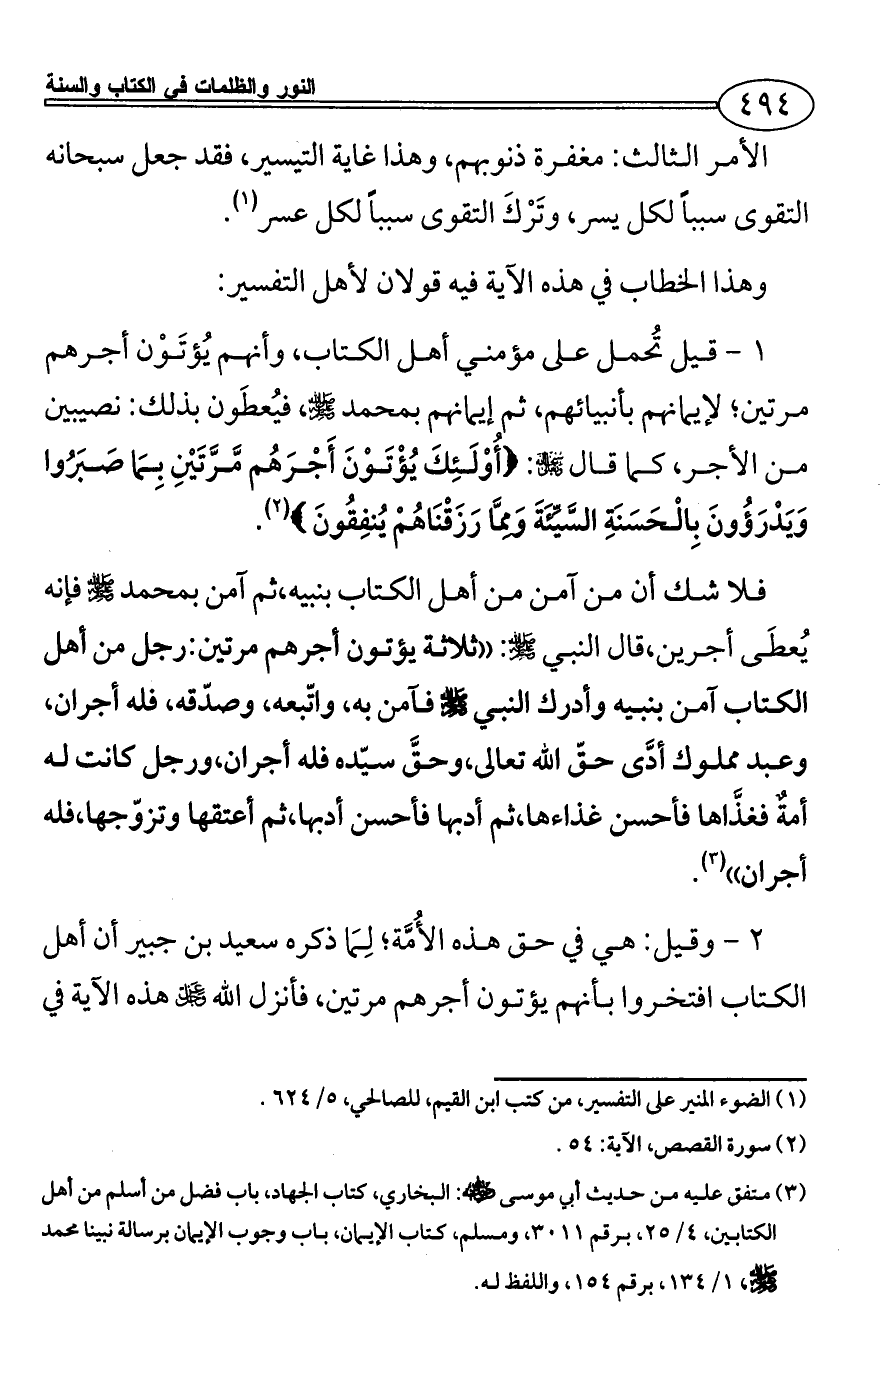 النور والظلمات في الكتاب والسنة
٤٩٤
الأمر الثالث: مغفرة ذنوبهم، وهذا غاية التيسير، فقد جعل سبحانه
التقوى سبباً لكل يسر، وتَرْكَ التقوى سبباً لكل عسر(١).
وهذا الخطاب في هذه الآية فيه قولان لأهل التفسير:
١ - قيل تُحمل على مؤمني أهل الكتاب، وأنهم يُؤتَوْن أجرهم
مرتين؛ لإيمانهم بأنبيائهم، ثم إيمانهم بمحمد ﷺ، فيُعطَون بذلك: نصيبين
من الأجر، كما قال ﷻ: ﴿أُوْلَئِكَ يُؤْتَوْنَ أَجْرَهُم مَّرَّتَيْنِ بِمَا صَبَرُوا
وَيَدْرَؤُونَ بِالْحَسَنَةِ السَّيِّئَةَ وَمِمَّا رَزَقْنَاهُمْ يُنفِقُونَ﴾(٢).
فلا شك أن من آمن من أهل الكتاب بنبيه،ثم آمن بمحمد ﷺ فإنه
يُعطَى أجرين،قال النبي ﷺ: ((ثلاثة يؤتون أجرهم مرتين:رجل من أهل
الكتاب آمن بنبيه وأدرك النبي ﷺ فآمن به، واتّبعه، وصدّقه، فله أجران،
وعبد مملوك أدَّى حقّ الله تعالى،وحقَّ سيّده فله أجران،ورجل كانت له
أمةٌ فغذَّاها فأحسن غذاءها،ثم أدبها فأحسن أدبها،ثم أعتقها وتزوّجها،فله
أجران))(٣).
٢ - وقيل: هي في حق هذه الأُمَّة؛ لِمَا ذكره سعيد بن جبير أن أهل
الكتاب افتخروا بأنهم يؤتون أجرهم مرتين، فأنزل الله ﷻ هذه الآية في
(١) الضوء المنير على التفسير، من كتب ابن القيم، للصالحي، ٥/ ٦٢٤ .
(٢) سورة القصص، الآية: ٥٤ .
(٣) متفق عليه من حديث أبي موسى ﵁: البخاري، كتاب الجهاد، باب فضل من أسلم من أهل
الكتابين، ٤/ ٢٥، برقم ٣٠١١، ومسلم، كتاب الإيمان، باب وجوب الإيمان برسالة نبينا محمد
ﷺ، ١/ ١٣٤، برقم ١٥٤، واللفظ له.